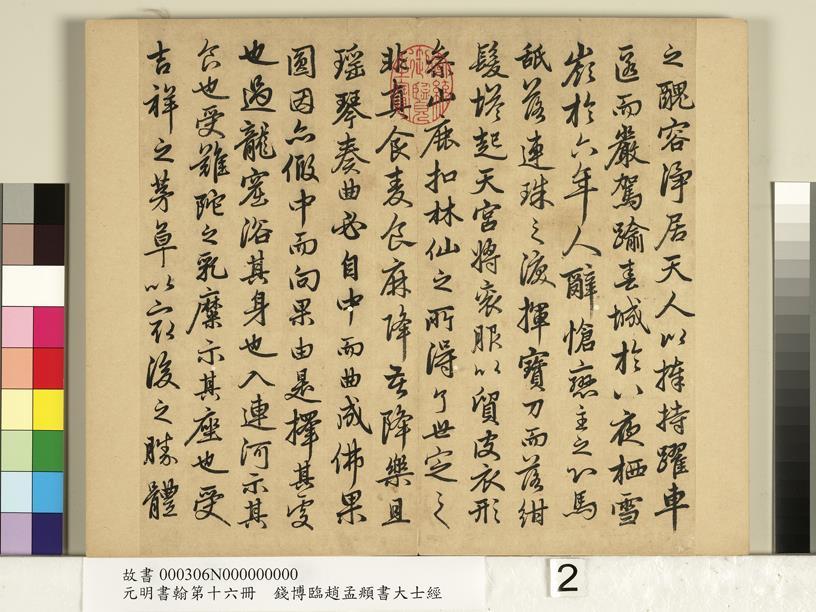 之醜容淨居天人以捧持躍車
匿而嚴駕踰春城於八夜栖雪
嶺於六年人辭愴戀主之心馬
舐落連珠之淚揮寶刀而落紺
髮塔起天宮將衮服以貿皮衣形
叅山鹿扣林仙之所得了世定之
非真食麦食麻降苦降樂且
瑶琴奏曲必自中而曲成佛果
圓因亦假中而向果由是擇其處
也過龍窟浴其身也入連河示其
食也受難陀之乳糜示其座也受
吉祥之茅草以最後之勝體
故書 000306N000000000
元明書翰第十六冊　錢博臨趙孟頫書大士經
2